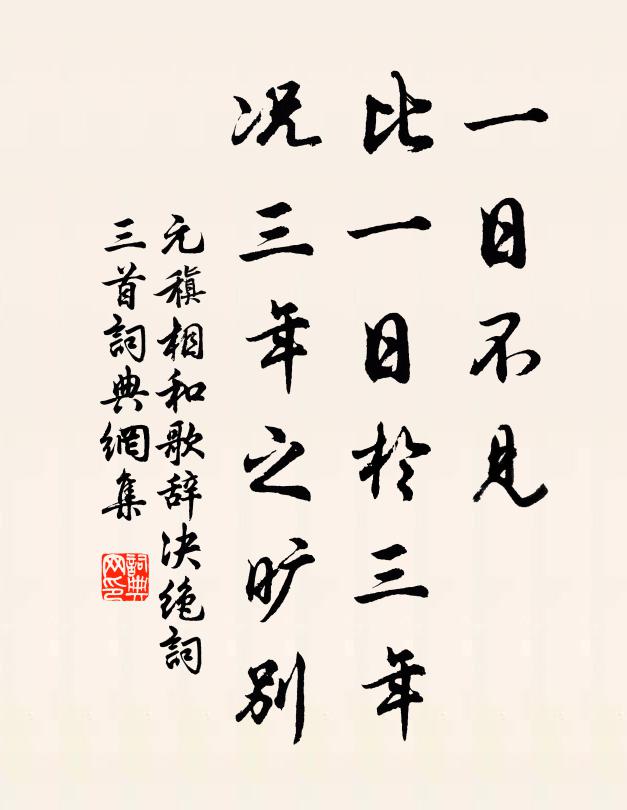 一日不见
比一日於三年
况三年之旷别
元稹相和歌辞决绝詞
三首詞典網集
詞典
网印